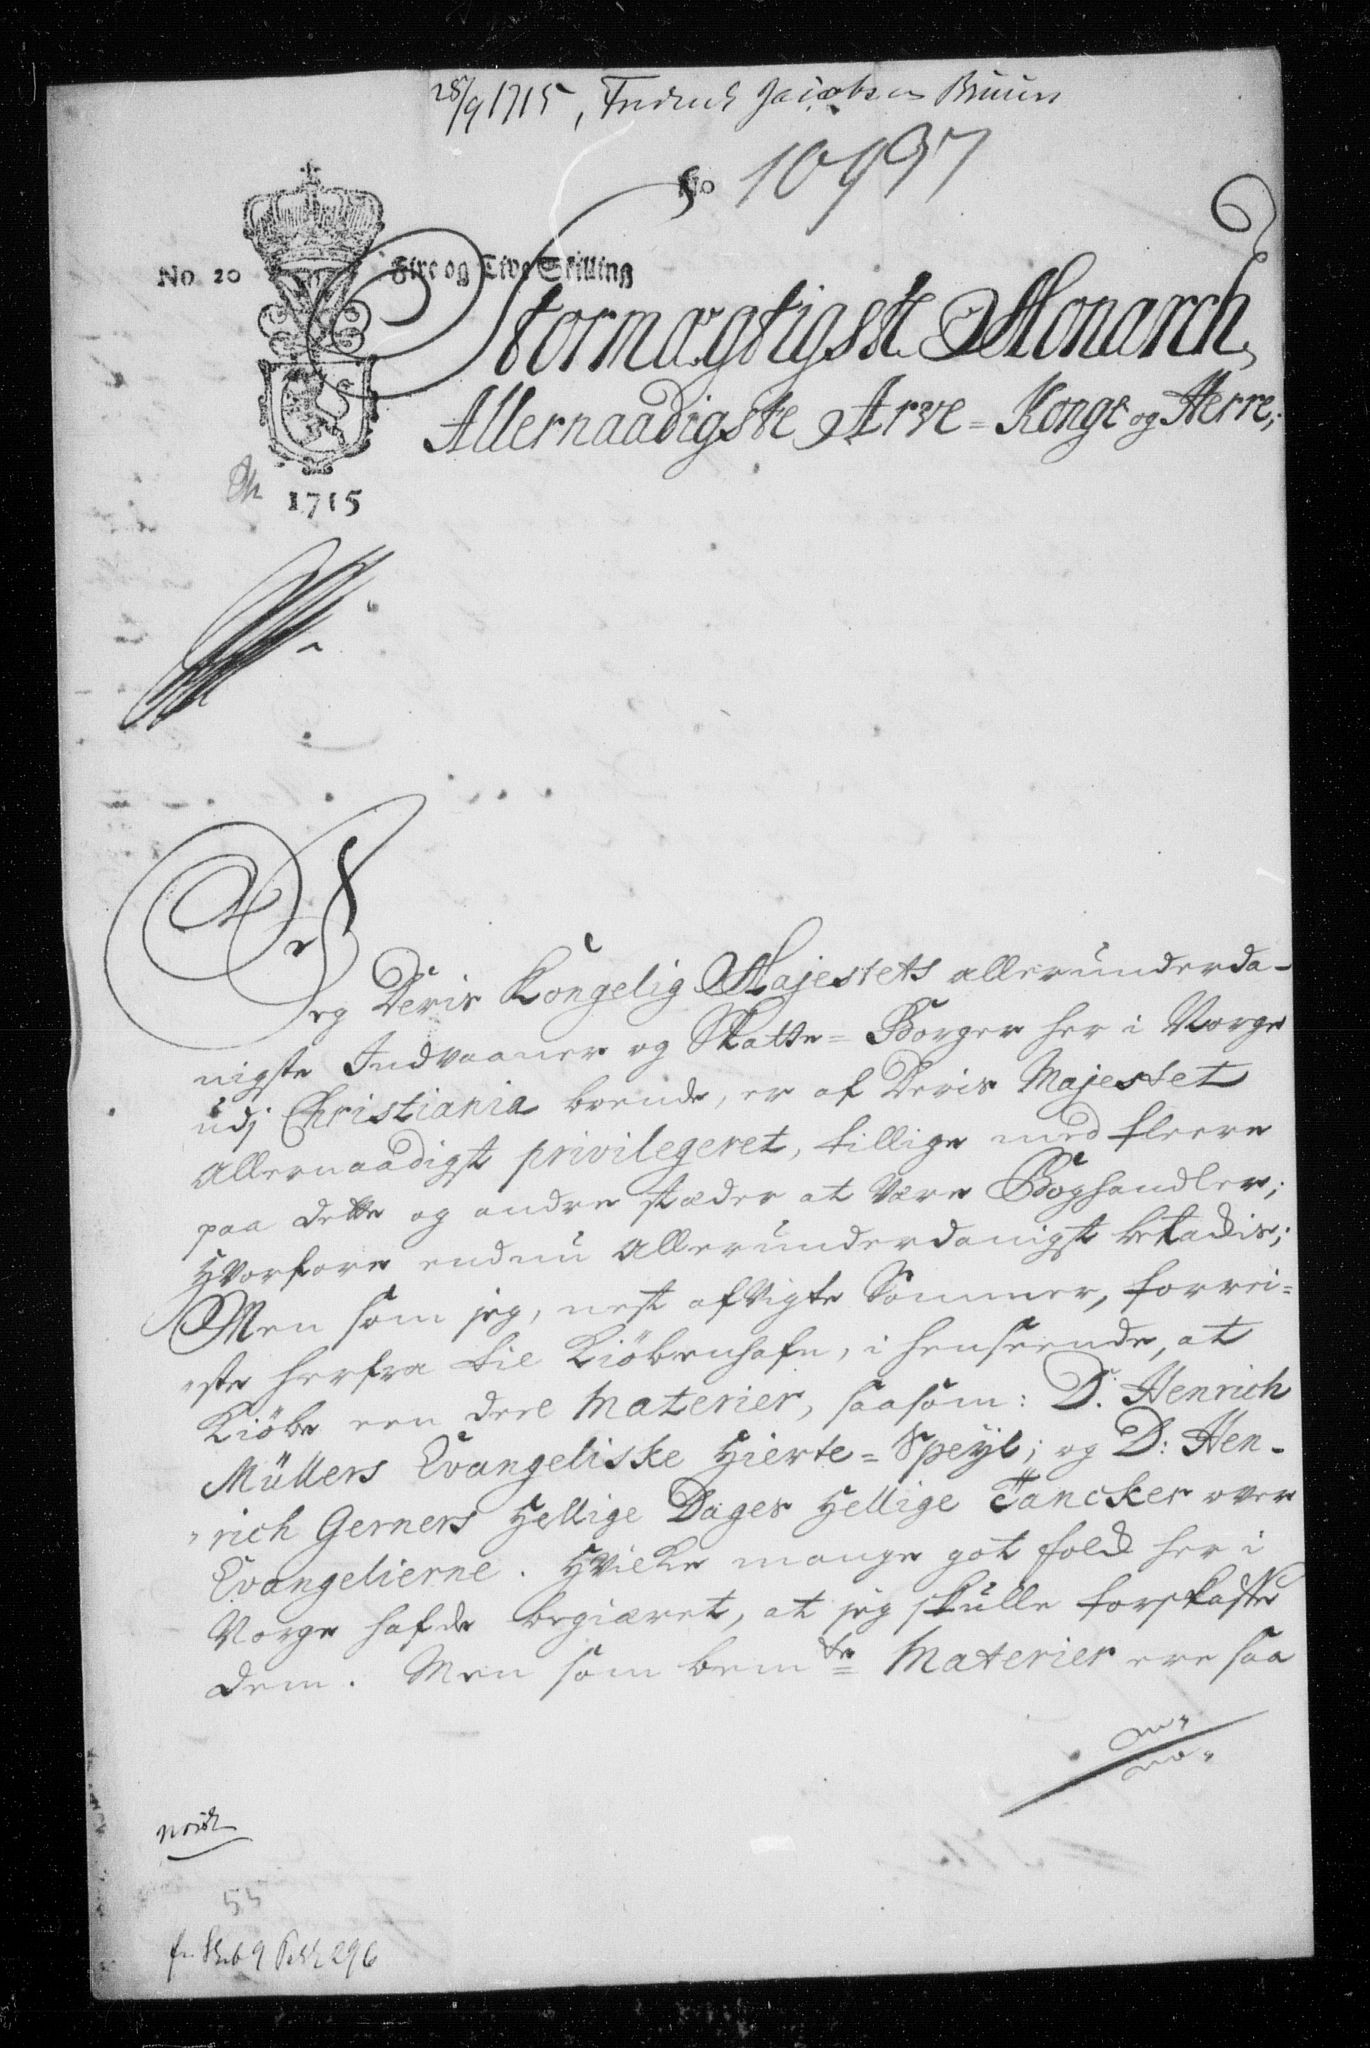 28/9 1715, Fridrich Jacobsen Bruun
No 10937
No. 20 Fire og Tive Skilling
Stormægtigste Monarch,
Allernaadigste Arve-Konge og Herre;
1715
Jeg Deris Kongelig Majestets allerunderda-
nigste Indvaaner og Skatte-Borger her i Norge
udj Christiania boende, er af Deris Majestet
Allernaadigst privilegeret, tillige med fleere
paa dette og andre stæder at være Boghandler;
Hvorfore endnu Allerunderdanigst betackis;
Men som jeg, nest afvigte Sommer, forrei-
ste herfra til Kiöbenhafn, i henseende, at
Kiöbe een deel Materier, saasom: D. Henrich
Müllers Evangeliske Hierte-Speyl; og D: Hen-
rich Gerners Hellige Dages Hellige Tancker over
Evangelierne. Hvilke mange got folck her i
Norge hafde begiæret, at jeg skulle forskaffe
dem. Men som bem.te Materier ere saa
norsk
55
296